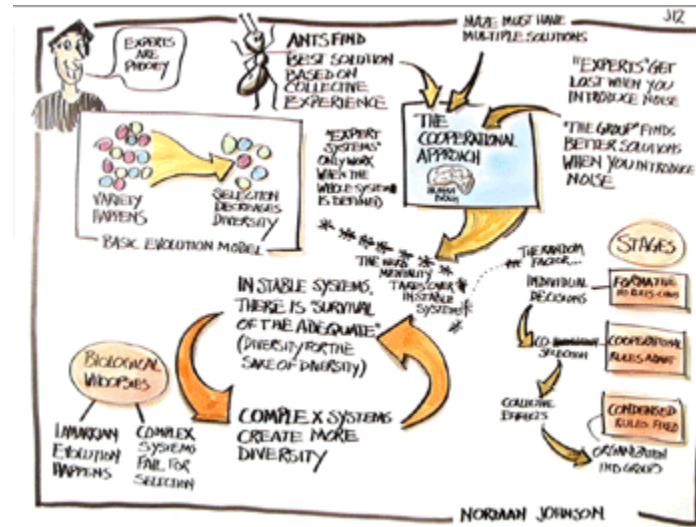 J12
EXPERTS
ARE
PHOOEY
ANTS FIND
BEST SOLUTION
BASED ON
COLLECTIVE
EXPERIENCE
MAZE MUST HAVE
MULTIPLE SOLUTIONS
"EXPERTS" GET
LOST WHEN YOU
INTRODUCE NOISE
"THE GROUP" FINDS
BETTER SOLUTIONS
WHEN YOU INTRODUCE
NOISE
THE
COOPERATIONAL
APPROACH
HUMAN
BRAIN
"EXPERT
SYSTEMS"
ONLY WORK
WHEN THE
WHOLE SYSTEM
IS DEFINED
VARIETY
HAPPENS
SELECTION
DECREASES
DIVERSITY
BASIC EVOLUTION MODEL
THE HERD
MENTALITY
TAKES OVER
IN STABLE
SYSTEMS
IN STABLE SYSTEMS,
THERE IS SURVIVAL
OF THE ADEQUATE"
(DIVERSITY FOR THE
SAKE OF DIVERSITY)
COMPLEX SYSTEMS
CREATE MORE
DIVERSITY
BIOLOGICAL
WHOOPSIES
LAMARKIAN
EVOLUTION
HAPPENS
COMPLEX
SYSTEMS
FAIL FOR
SELECTION
STAGES
THE RANDOM
FACTOR...
INDIVIDUAL
DECISIONS
FORMATIVE
CO-
SELECTION
COOPERATIONAL
RULES ADAPT
COLLECTIVE
EFFECTS
CONDENSED
RULES FIXED
ORGANIZATION
IND GROUPS
NORMAN JOHNSON